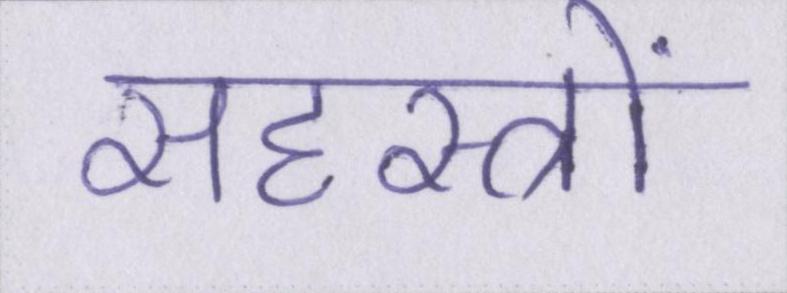 सहस्त्रों